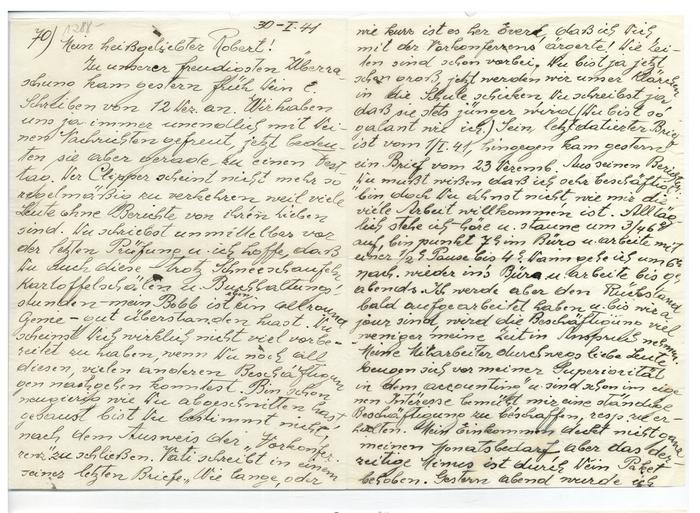 30-I.41
70) 1288-
Mein heißgeliebter Robert!
Zu unserer freudigsten Überra-
schung kam gestern früh Dein l.
Schreiben von 12 Dez. an. Wir haben
uns ja immer unendlich mit Dei-
nen Nachrichten gefreut, jetzt bedeu-
ten sie aber gerade zu einen Fest-
tag. Der Clipper scheint nicht mehr so
regelmäßig zu verkehren weil viele
Leute ohne Berichte von ihren Lieben
sind. Du schriebst unmittelbar vor
der letzten Prüfung u. ich hoffe, daß
Du auch diese - trotz Schneeschaufeln
Kartoffelschälen u. Buchhaltungs-
stunden - mein Bobb ist ein allround
Genie - gut überstanden hast. Du
scheinst Dich wirklich nicht viel vorbe-
reitet zu haben, wenn Du noch all
diesen, vielen anderen Beschäftigun
gen nachgehen konntest. Bin schon
neugierig wie Du abgeschnitten hast
gesaust bist Du bestimmt nicht,
nach dem Ausweis der "Vorkonfer.
renz" zu schließen. Vati schreibt in einem
seiner letzten Briefe "Wie lange, oder
wie kurz ist es her Everl, daß ich Dich
mit der Vorkonferrenz ärgerte! Die Zei-
ten sind schon vorbei. Du bist ja jetzt
schon groß, jetzt werden wir unser
in die Schule schicken Du schreibst ja,
daß sie stets jünger wird (Du bist so
galant wie ich.) Sein, letztdatierter Brief
ist vom 1/I.41, hingegen kam gestern
ein Brief vom 23 Dezemb. Aus seinen
Du mußt wißen daß ich sehr beschäftigt
bin doch Du ahnst nicht, wie mir die
viele Arbeit willkommen ist. Alltäg-
lich stehe ich u. staune um 3/4 6h
auf, bin punkt 7h im Büro u. arbeite mit
einer 1/2h Pause bis 4h Dann gehe ich um 6h
nach. wieder ins Büro u. arbeite bis 9h
abends. Ich werde aber den Rückstand
bald aufgearbeitet haben u. bis wir a
jour sind, wird die Beschäftigung viel
weniger meine Zeit in Anspruch nehmen.
Meine Mitarbeiter durchwegs liebe Leute
beugen sich vor meiner Superiorität
in dem "accounting" u. sind schon im eige
nen Interesse bemüht mir eine ständige
Beschäftigung zu beschaffen, resp. zu er-
halten. Mein Einkommen deckt nicht ganz
meinen Monatsbedarf aber das der-
zeitige Minus ist durch Dein Paket
behoben. Gestern abend wurde ich